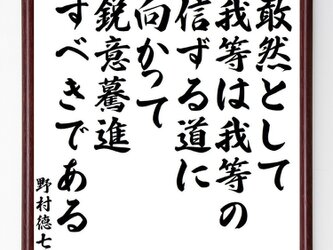 敢然として
我等は我等の
信ずる道に
向かって
鋭意驀進
すべきである
野村徳七